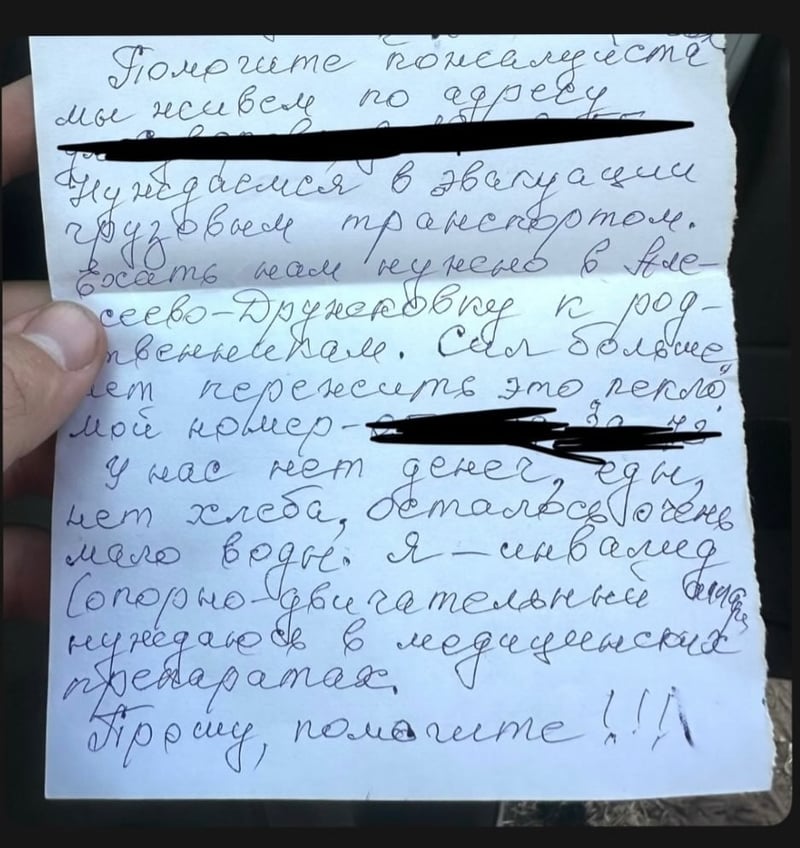 Помогите пожалуйста
мы живем по адресу
Нуждаемся в эвакуации
грузовым транспортом.
Ехать нам нужно в Але-
сеево-Дружковку к род-
твенникам. Сил больше
нет пережить это "пекло"
мой номер-
У нас нет денег, еды,
нет хлеба, осталось очень
мало воды. Я - инвалид
(опорно-двигательный
нуждаюсь в медицинских
препаратах.
Прошу, помогите !!!